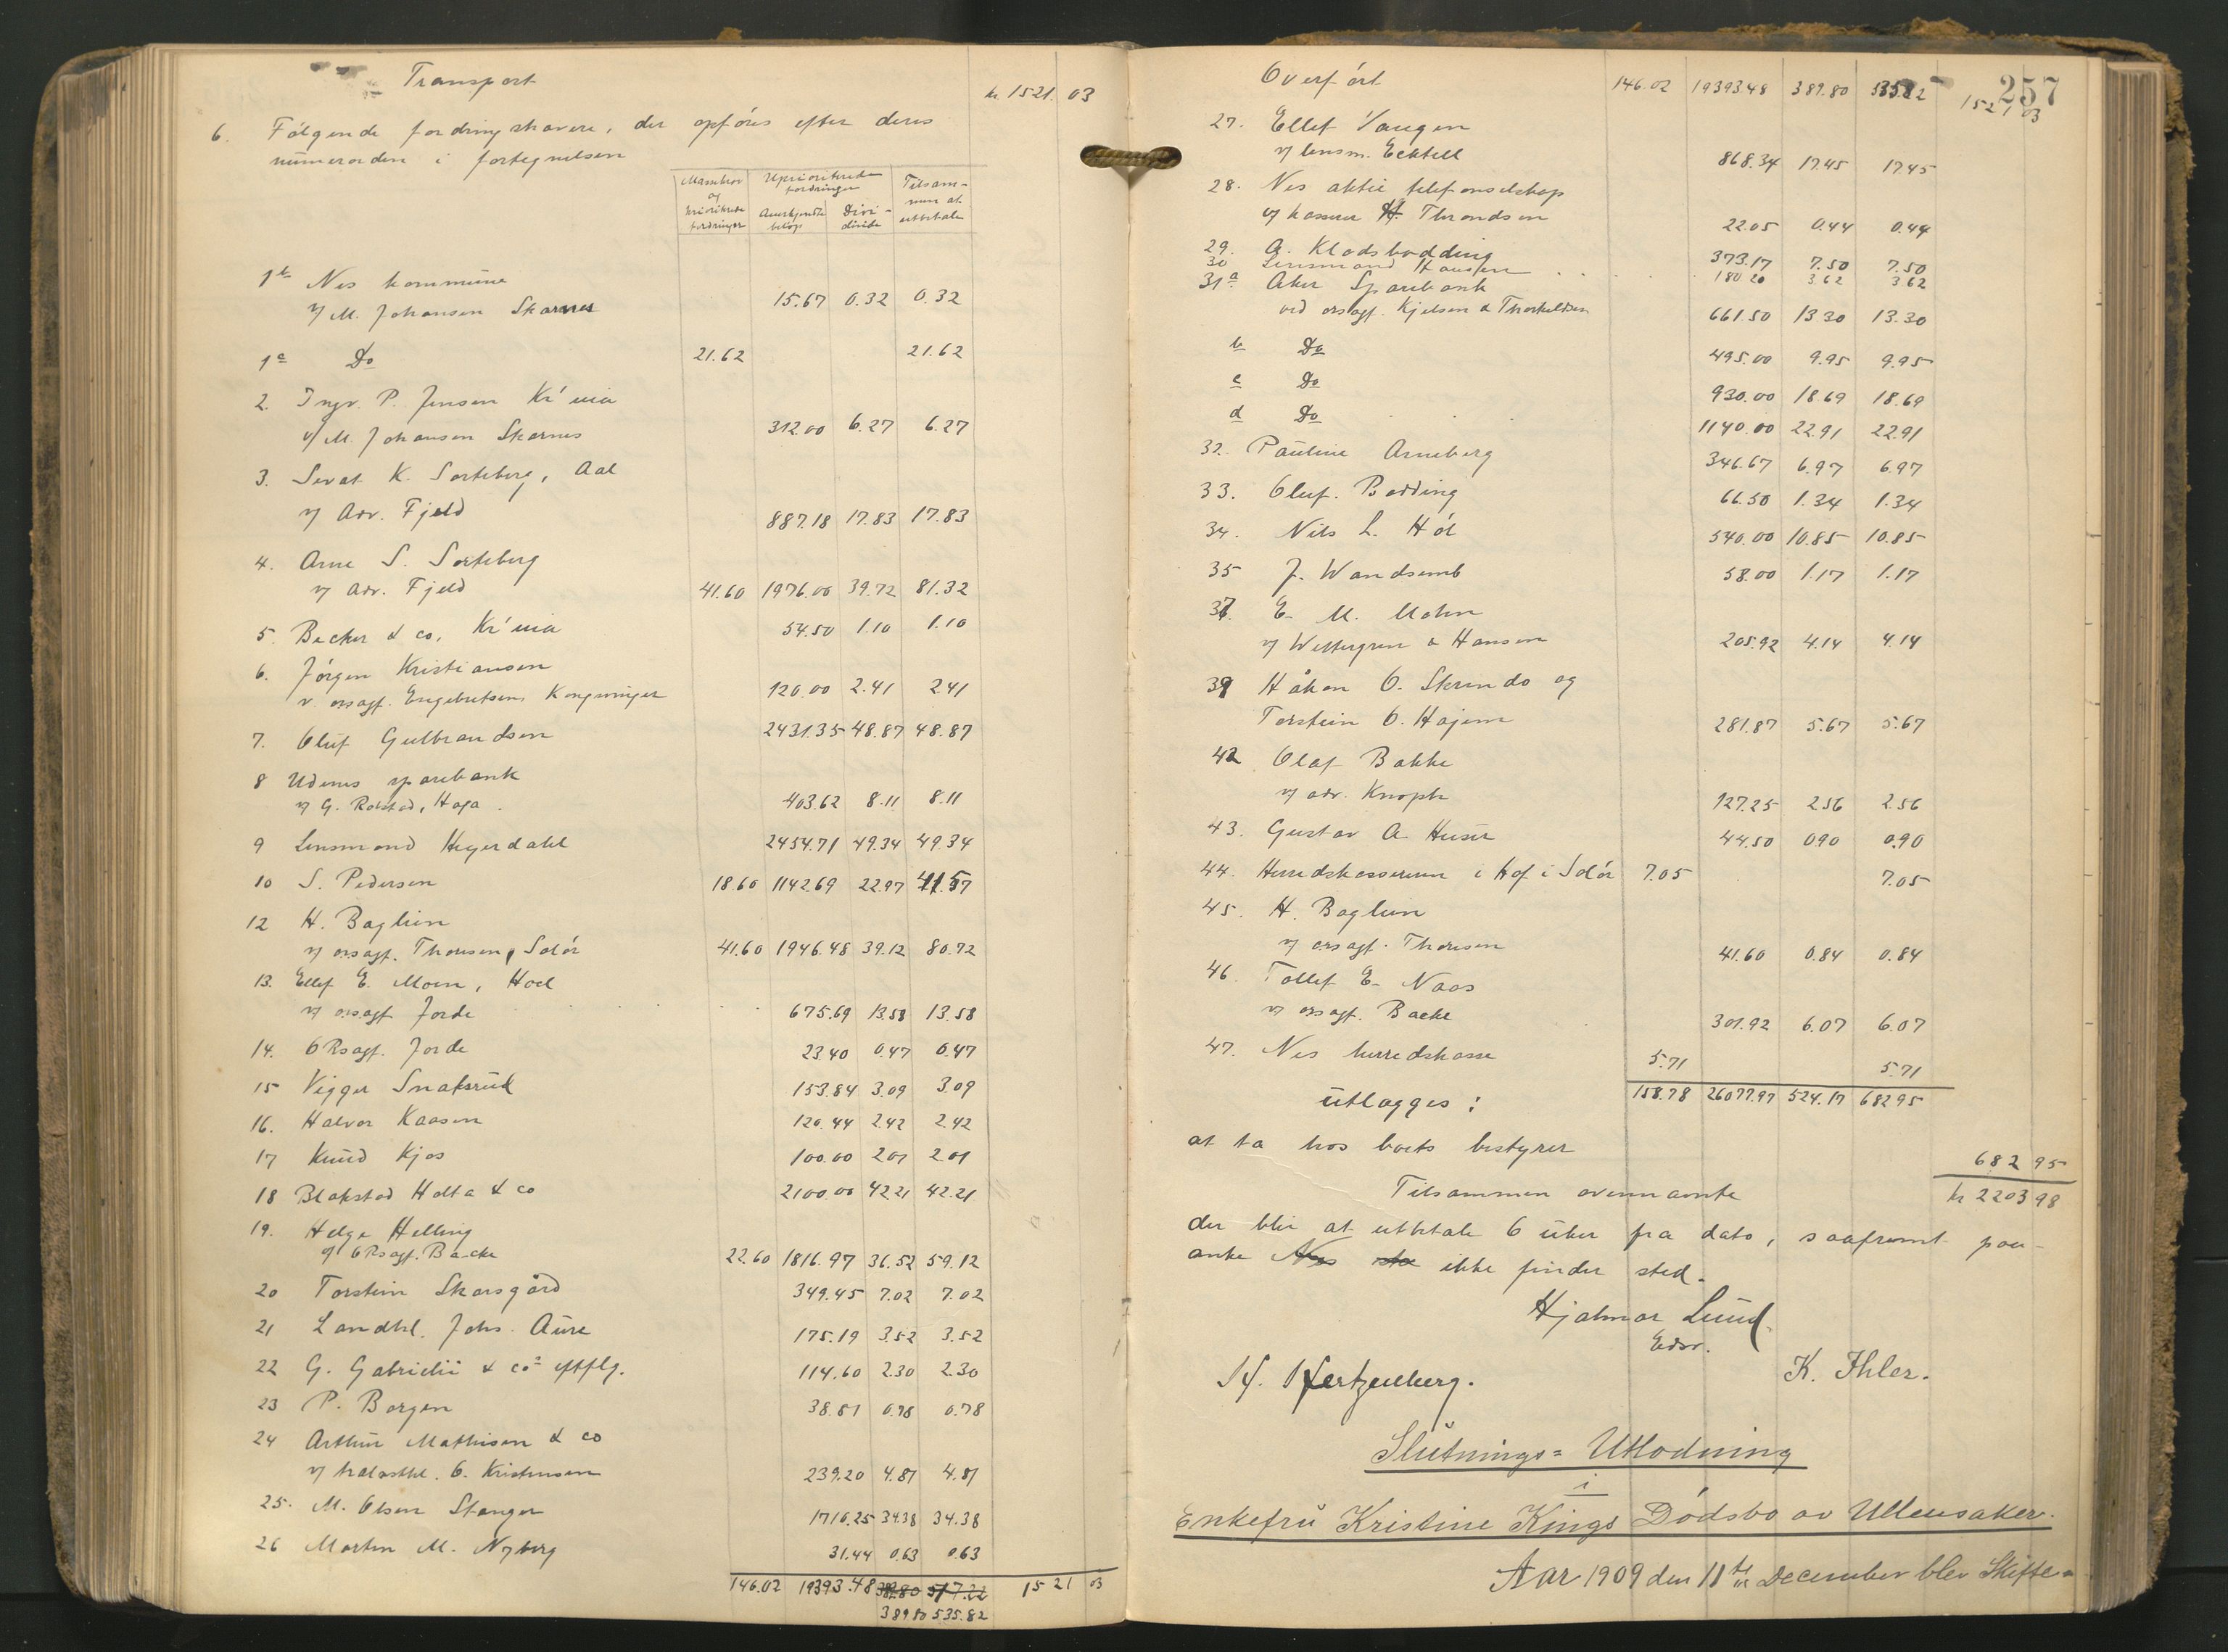 Transport kr. 1521. 03
6. Følgende fordringshavere, der opføres efter deres
nummerorden i fortegnelsen
Massekrav og prioriterede fordringer | Uprioriterede fordringer | Tilsammen at utbetale
Anerkjendte beløp | Dividende
1b Nes kommune
v/ M. Johansen Skarnes 15.67 0.32 0.32
1a Do 21.62 21.62
2. Ingv. P. Jensen Kr'nia
v/ M. Johansen Skarnes 312.00 6.27 6.27
3. Sevat K. Sorteberg, Aal
v/ Adv. Fjeld 887.18 17.83 17.83
4. Arne S. Sorteberg
v/ Adv. Fjeld 41.60 1976.00 39.72 81.32
5. Becker & co, Kr'nia 54.50 1.10 1.10
6. Jörgen Kristiansen
v. orsagf. Engebretsen, Kongsvinger 120.00 2.41 2.41
7. Oluf Gulbrandsen 2431.35 48.87 48.87
8 Udenes sparebank
v/ G. Rolstad, Haga. 403.62 8.11 8.11
9 Lensmand Hegerdahl 2454.71 49.34 49.34
10 S. Pedersen 18.60 1142.69 22.97 41.57
12 H. Baglien
v/ orsagf. Thoresen, Solör 41.60 1946.48 39.12 80.72
13. Ellef E. Moen, Hoel
v/ orsagf. Jorde 675.69 13.58 13.58
14. ORsagf. Jorde 23.40 0.47 0.47
15 Vigger Snaksrud 153.84 3.09 3.09
16. Halvor Kaasen 120.44 2.42 2.42
17 Knud Kjos 100.00 2.01 2.01
18 Blakstad Holta & co 2100.00 42.21 42.21
19. Helge Helling
v/ ORsagf. Backe 22.60 1816.97 36.52 59.12
20 Torstein Skarsgård 349.45 7.02 7.02
21 Landhl. Johs. Aure 175.19 3.52 3.52
22 G. Gabrielii & co= eftflg. 114.60 2.30 2.30
23 P. Borgen 38.81 0.78 0.78
24 Arthur Mathisen & co
v/ O. Kristensen 239.20 4.81 4.81
25. M. Olsen Stanger 1710.25 34.38 34.38
26 Morten M. Nyberg 31.44 0.63 0.63
146.02 19393.48 382.80 517.22 15 21 03
389 80 535.82
257
Overført 146.02 19393.48 389.80 535.82 1521 03
27. Ellef Vangen
v/ lensm. Ecktell 868.34 17.45 17.45
28. Nes aktie telefonselskap
v/ kasserer H. Throndsen 22.05 0.44 0.44
29. A. Klodsbodding 373.17 7.50 7.50
30 Lensmand Hansen 180.20 3.62 3.62
31a Aker Sparebank
ved orsagf. Kjelsen & Thorkildsen 661.50 13.30 13.30
b Do 495.00 9.95 9.95
c Do 930.00 18.69 18.69
d Do 1140.00 22.91 22.91
32. Pauline Arneberg 346.67 6.97 6.97
33. Oluf. Bodding 66.50 1.34 1.34
34. Nils L. Hól 540.00 10.85 10.85
35 J. Wandsemb 58.00 1.17 1.17
37. E. M. Mohn
v/ Wettergren & Hansen 205.92 4.14 4.14
39 Håkon O. Skrindo og
Torstein O. Hajem 281.87 5.67 5.67
42 Olaf Bakke
v/ adv. Knoph 127.25 2.56 2.56
43. Gustav A. Huser 44.50 0.90 0.90
44. Herredskassereren i Hof i Solör 7.05 7.05
45. H. Baglien
v/ orsagf. Thoresen 41.60 0.84 0.84
46. Tollef E. Naas
v/ orsagf. Backe 301.92 6.07 6.07
47. Nes herredskasse 5.71 5.71
158.78 26077.97 524.17 682 95
utlægges:
at ta hos boets bestyrer 682 95
Tilsammen ovennævnte kr 2203 98
der blir at utbetale 6 uker fra dato, saafremt paa-
anke ikke finder sted.
Hjalmar Lund.
Edsv.
H. Hertzenberg. K. Ihler.
Slutnings= Utlodning
i
Enkefru Kristine Kings Dødsbo av Ullensaker.
Aar 1909 den 11te December blev Skifte=